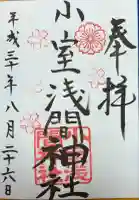 奉拝
小室浅間神社
平成三十年八月二十六日